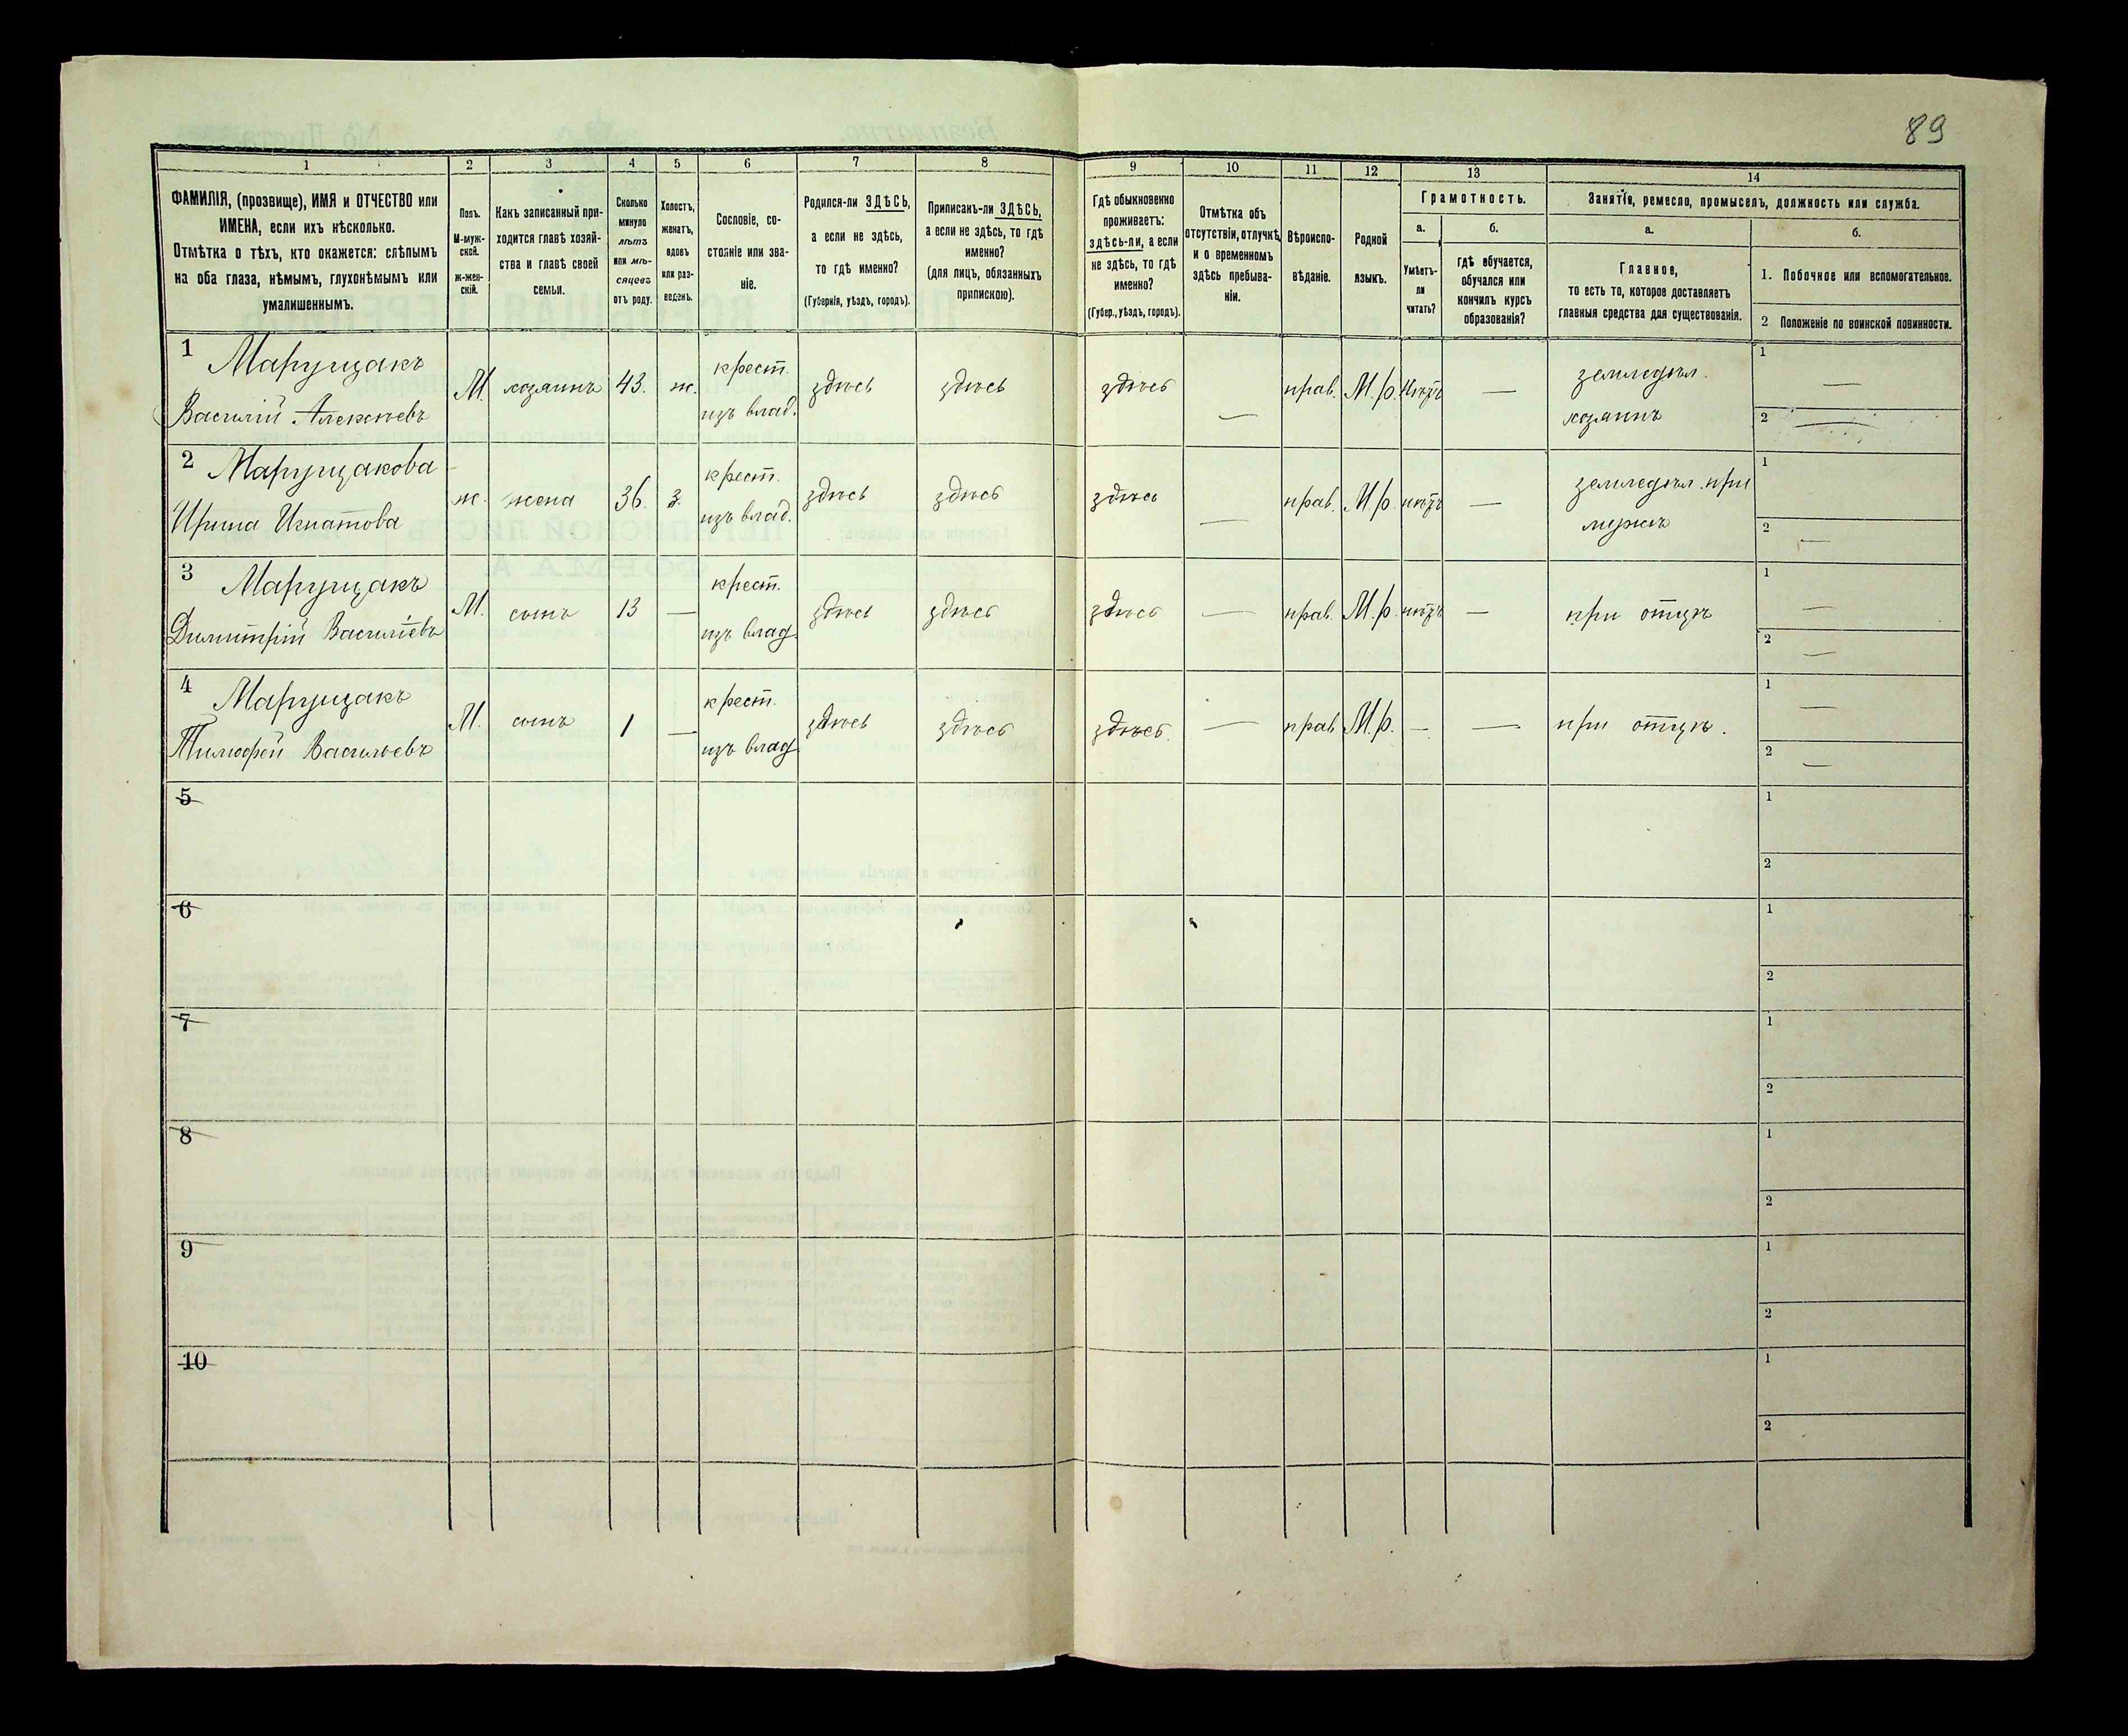 89
1 2 3 4 5 6 7 8 9 10 11 12 13 14
ФАМИЛІЯ, (прозвище), ИМЯ и ОТЧЕСТВО или
ИМЕНА, если ихъ нѣсколько.
Отмѣтка о тѣхъ, кто окажется: слѣпымъ
на оба глаза, нѣмымъ, глухонѣмымъ или
умалишеннымъ.
Полъ.
М-муж-
ской.
ж-жен-
скій.
Какъ записанный при-
ходится главѣ хозяй-
ства и главѣ своей
семьи.
Сколько
минуло
лѣтъ
или мѣ-
сяцевъ
отъ роду.
Холостъ,
женатъ,
вдовъ
или раз-
веденъ.
Сословіе, со-
стояніе или зва-
ніе.
Родился-ли ЗДѢСЬ,
а если не здѣсь,
то гдѣ именно?
(Губернія, уѣздъ, городъ).
Приписанъ-ли ЗДѢСЬ,
а если не здѣсь, то гдѣ
именно?
(для лицъ, обязанныхъ
припискою).
Гдѣ обыкновенно
проживаетъ:
здѣсь-ли, а если
не здѣсь, то гдѣ
именно?
(Губер., уѣздъ, городъ).
Отмѣтка объ
отсутствіи, отлучкѣ
и о временномъ
здѣсь пребыва-
ніи.
Вѣроиспо-
вѣданіе.
Родной
языкъ.
Грамотность.
а.
Умѣетъ-
ли
читать?
б.
гдѣ обучается,
обучался или
кончилъ курсъ
образованія?
Занятіе, ремесло, промыселъ, должность или служба.
а.
Главное,
то есть то, которое доставляетъ
главныя средства для существованія.
б.
1. Побочное или вспомогательное.
2 Положеніе по воинской повинности.
1 Марущакъ
Василій Алексѣевъ
М. хозяинъ 43. ж.
крест.
изъ влад.
здѣсь здѣсь здѣсь — прав. М.р. Нѣтъ —
земледѣл.
хозяинъ
1 —
2 —
2 Марущакова
Ирина Игнатова
ж. жена 36. з.
крест.
изъ влад.
здѣсь здѣсь здѣсь — прав. М.р. нѣтъ —
земледѣл. при
мужѣ
1
2 —
3 Марущакъ
Димитрій Василіевъ
М. сынъ 13 —
крест.
изъ влад
здѣсь здѣсь здѣсь — прав. М.р. нѣтъ — при отцѣ
1 —
2 —
4 Марущакъ
Тимофей Васильевъ
М. сынъ 1 —
крест.
изъ влад
здѣсь здѣсь здѣсь. — прав М.р. — — при отцѣ.
1 —
2 —
5
1
2
6
1
2
7
1
2
8
1
2
9
1
2
10
1
2